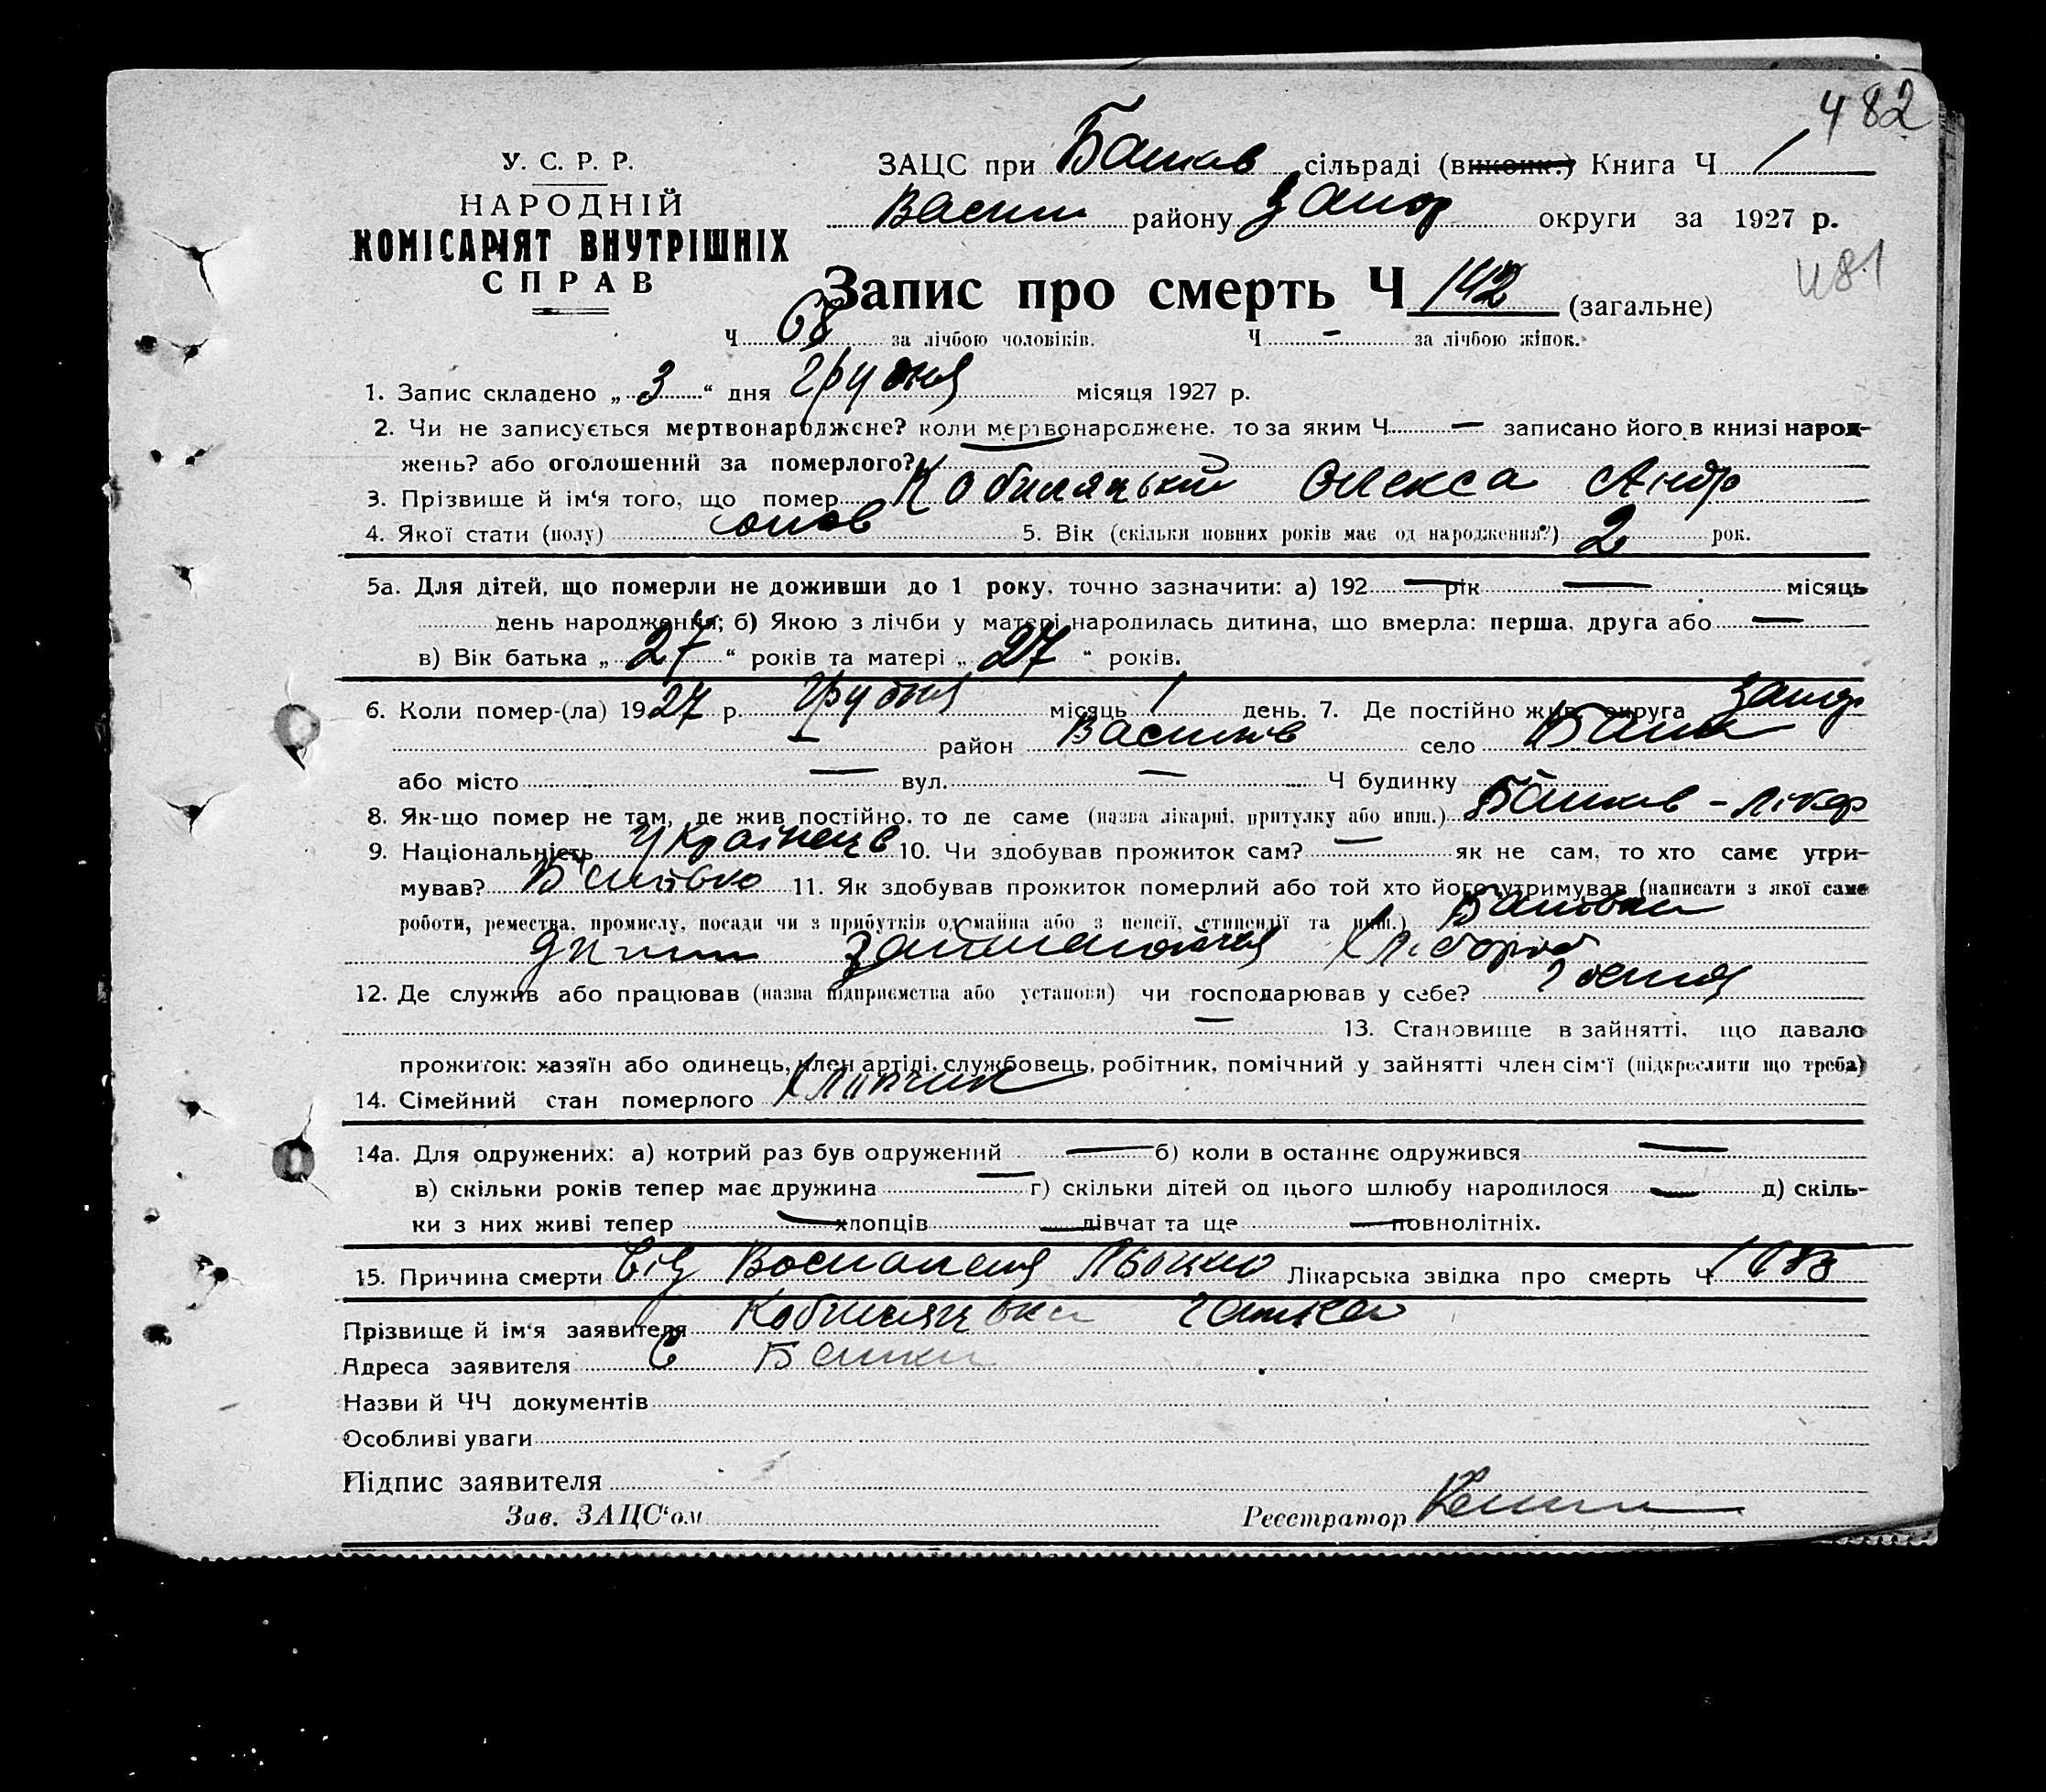 482
У. С. Р. Р.
НАРОДНІЙ
КОМІСАРІЯТ ВНУТРІШНІХ
СПРАВ
ЗАЦС при Балків сільраді (виконк.) Книга Ч 1
Васил району Запор округи за 1927 р.
481
Запис про смерть Ч 142 (загальне)
Ч 68 за лічбою чоловіків. Ч - за лічбою жінок.
1. Запис складено „ 3 “ дня грудня місяця 1927 р.
2. Чи не записується мертвонароджене? коли мертвонароджене, то за яким Ч — записано його в книзі народ-
жень? або оголошений за померлого?
3. Прізвище й ім‘я того, що помер Кобиляцький Олекса Андр
4. Якої стати (полу) 5. Вік (скільки повних років має од народження?) 2 рок.
5а. Для дітей, що померли не доживши до 1 року, точно зазначити: а) 192 — рік — місяць
день народження; б) Якою з лічби у матері народилась дитина, що вмерла: перша, друга або —
в) Вік батька „ 27 “ років та матері „ 27 “ років.
6. Коли помер-(ла) 1927 р. грудня місяць 1 день. 7. Де постійно жив округа Запор
— район Василків село
або місто — вул. — Ч будинку
8. Як-що помер не там, де жив постійно, то де саме (назва лікарні, притулку або инш.) Балків - лікар
9. Національність Українець 10. Чи здобував прожиток сам? — як не сам, то хто саме утри-
мував? Батько 11. Як здобував прожиток померлий або той хто його утримував (написати з якої саме
роботи, ремества, промислу, посади чи з прибутків од майна або з пенсії, стипендії та инш.)
хлібороб
12. Де служив або працював (назва підприємства або установи) чи господарював у себе?
— 13. Становище в зайнятті, що давало
прожиток: хазяїн або одинець, член артілі, службовець, робітник, помічний у зайнятті член сім‘ї (підкреслити що треба)
14. Сімейний стан померлого Хлопчик
14а. Для одружених: а) котрий раз був одружений — б) коли в останнє одружився —
в) скільки років тепер має дружина — г) скільки дітей од цього шлюбу народилося — д) скіль-
ки з них живі тепер — хлопців — дівчат та ще — повнолітніх.
15. Причина смерти Воспаления Лікарська звідка про смерть Ч
Прізвище й ім‘я заявителя Кобиляцька
Адреса заявителя С Балки
Назви й ЧЧ документів
Особливі уваги
Підпис заявителя
Зав. ЗАЦС‘ом Реєстратор